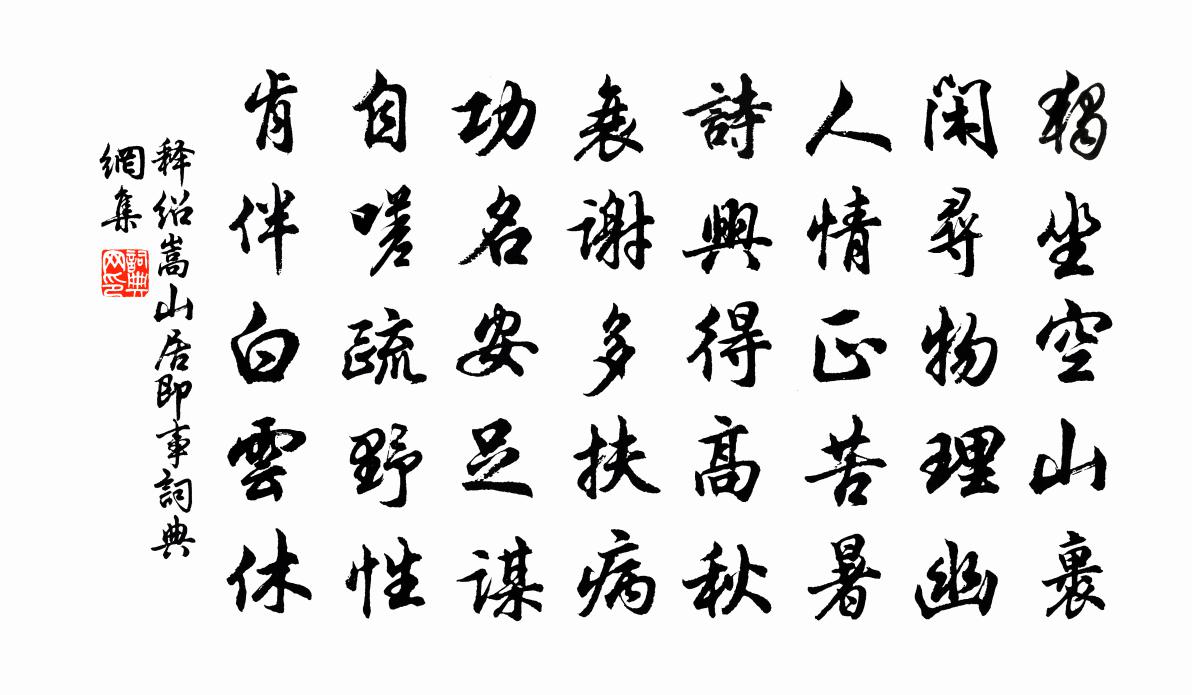 獨坐空山裏
閑尋物理幽
人情正苦暑
詩興得高秋
衰謝多扶病
功名安足謀
自嗟疏野性
肯伴白雲休
释绍嵩山居即事詞典
網集
詞典网印